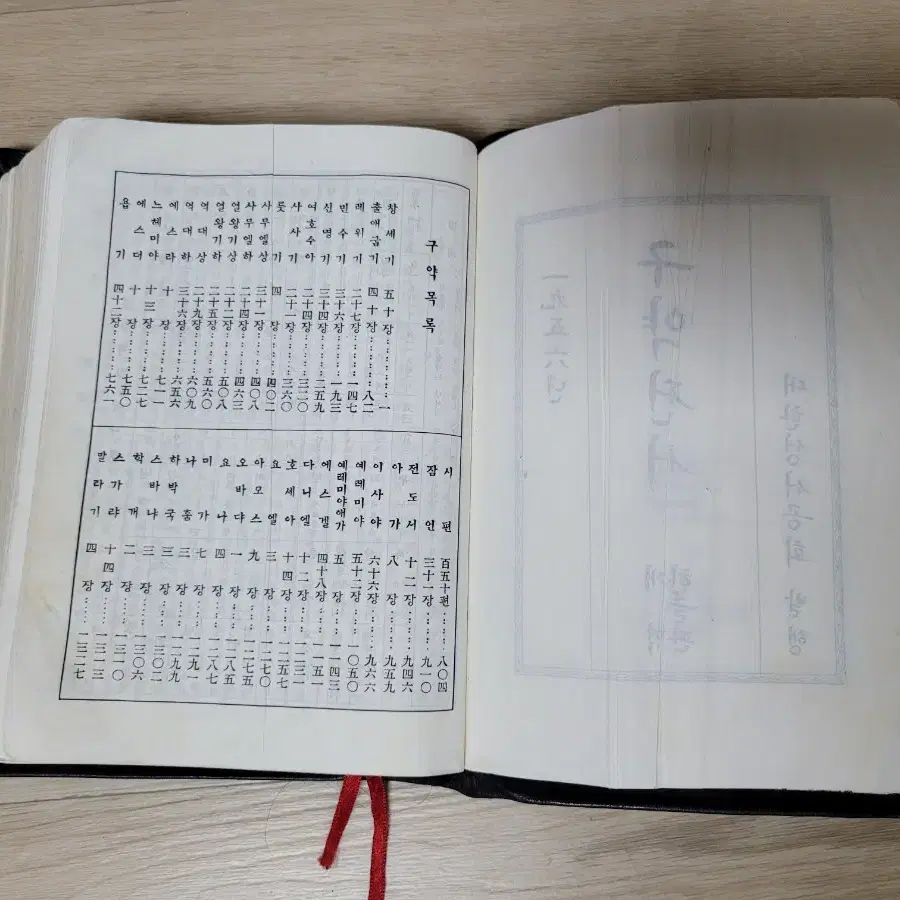 구약목록
창세기 五十장……一
출애굽기 四十장……八二
레위기 二十七장……一四七
민수기 三十六장……一九三
신명기 三十四장……二五九
여호수아 二十四장……三二〇
사사기 二十一장……三六〇
룻기 四장……四〇二
사무엘상 三十一장……四〇八
사무엘하 二十四장……四六三
열왕기상 二十二장……五〇八
열왕기하 二十五장……五六〇
역대상 二十九장……六〇九
역대하 三十六장……六五六
에스라 十장……七一一
느헤미야 十三장……七二七
에스더 十장……七五〇
욥기 四十二장……七六一
시편 百五十편……八〇四
잠언 三十一장……九一〇
전도서 十二장……九四六
아가 八장……九五九
이사야 六十六장……九六六
예레미야 五十二장……一〇五〇
예레미야애가 五장……一一四三
에스겔 四十八장……一一五一
다니엘 十二장……一二三一
호세아 十四장……一二五七
요엘 三장……一二七〇
아모스 九장……一二七五
오바댜 一장……一二八五
요나 四장……一二八七
미가 七장……一二九一
나훔 三장……一二九九
하박국 三장……一三〇二
스바냐 三장……一三〇六
학개 二장……一三一〇
스가랴 十四장……一三一三
말라기 四장……一三二七
一九五六년
구약전서
개역
한글판
대한성서공회 발행